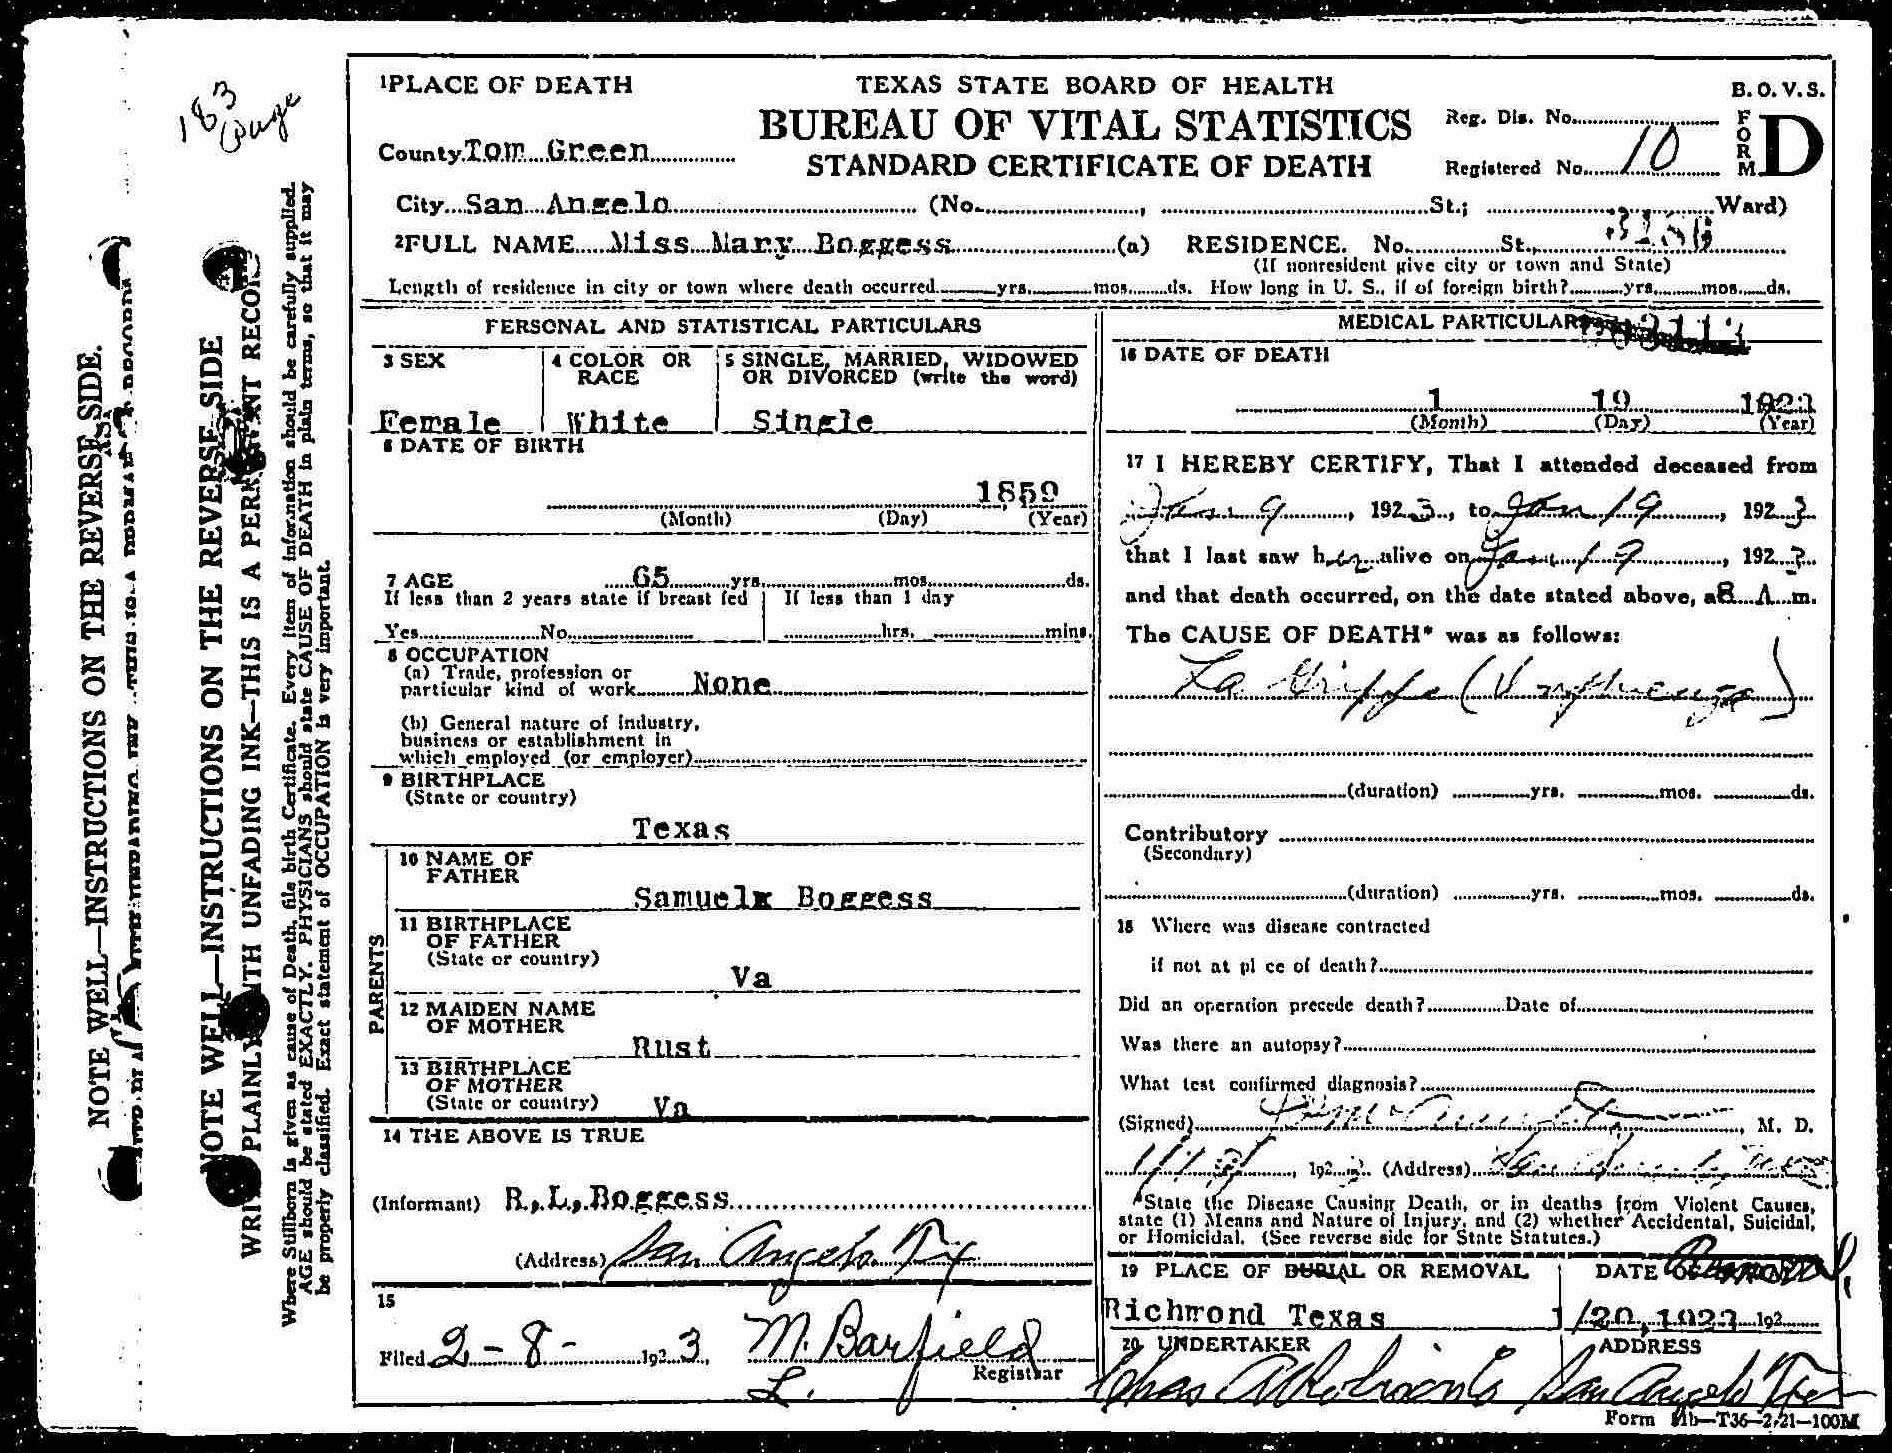 183
Page
NOTE WELL—INSTRUCTIONS ON THE REVERSE SIDE.
NOTE WELL—INSTRUCTIONS ON THE REVERSE SIDE
PLAINLY WITH UNFADING INK—THIS IS A PERMANENT RECORD
Where Stillborn is given as cause of Death, file birth Certificate. Every item of information should be carefully supplied.
AGE should be stated EXACTLY. PHYSICIANS should state CAUSE OF DEATH in plain terms, so that it may
be properly classified. Exact statement of OCCUPATION is very important.
1 PLACE OF DEATH
TEXAS STATE BOARD OF HEALTH
B. O. V. S.
BUREAU OF VITAL STATISTICS
Reg. Dis. No.
FORM D
County Tom Green
STANDARD CERTIFICATE OF DEATH
Registered No. 10
City San Angelo (No. , St.; Ward)
2 FULL NAME Miss Mary Boggess (a) RESIDENCE. No. St.,
(If nonresident give city or town and State)
Length of residence in city or town where death occurred yrs. mos. ds. How long in U. S., if of foreign birth? yrs. mos. ds.
PERSONAL AND STATISTICAL PARTICULARS
3 SEX
4 COLOR OR RACE
5 SINGLE, MARRIED, WIDOWED
OR DIVORCED (write the word)
Female White Single
6 DATE OF BIRTH
1859
(Month) (Day) (Year)
7 AGE 65 yrs. mos. ds.
If less than 2 years state if breast fed If less than 1 day
Yes No hrs. mins.
8 OCCUPATION
(a) Trade, profession or
particular kind of work None
(b) General nature of industry,
business or establishment in
which employed (or employer)
9 BIRTHPLACE
(State or country)
Texas
PARENTS
10 NAME OF
FATHER
Samuelx Boggess
11 BIRTHPLACE
OF FATHER
(State or country)
Va
12 MAIDEN NAME
OF MOTHER
Rust
13 BIRTHPLACE
OF MOTHER
(State or country) Va
14 THE ABOVE IS TRUE
(Informant) R.L.Boggess
(Address) San Angelo Tex
15
Filed 2-8- 1923 M. Barfield
Registrar
L.
MEDICAL PARTICULARS
16 DATE OF DEATH
1 19 1923
(Month) (Day) (Year)
17 I HEREBY CERTIFY, That I attended deceased from
Jan 9, 1923, to Jan 19, 1923
that I last saw her alive on Jan 19, 1923
and that death occurred, on the date stated above, a8 A m.
The CAUSE OF DEATH* was as follows:
La Grippe (Influenza)
(duration) yrs. mos. ds.
Contributory
(Secondary)
(duration) yrs. mos. ds.
18 Where was disease contracted
if not at pl ce of death?
Did an operation precede death? Date of
Was there an autopsy?
What test confirmed diagnosis?
(Signed) M. D.
192 (Address) San Angelo Texas
*State the Disease Causing Death, or in deaths from Violent Causes,
state (1) Means and Nature of Injury, and (2) whether Accidental, Suicidal,
or Homicidal. (See reverse side for State Statutes.)
19 PLACE OF BURIAL OR REMOVAL DATE OF Removal.
Richmond Texas 1/20,1923 192
20 UNDERTAKER ADDRESS
San Angelo Tex
Form 11b—T36—2-21—100M